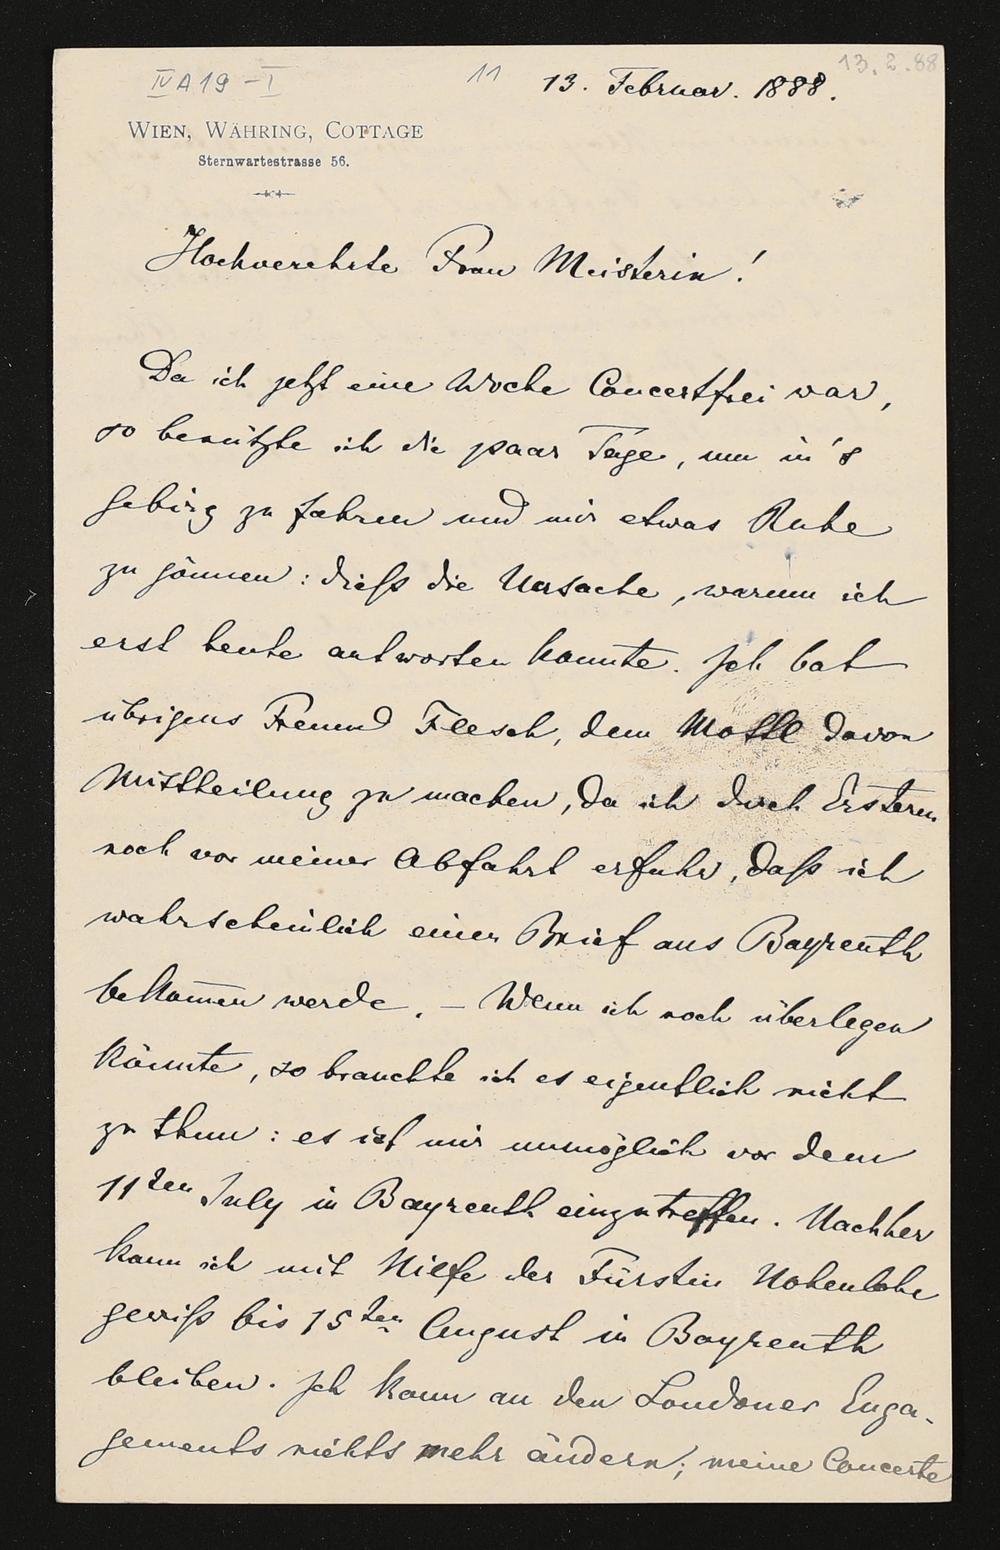 IV A 19 - I
11
13. Februar. 1888.
13. 2. 88
WIEN, WÄHRING, COTTAGE
Sternwartestrasse 56.
Hochverehrte Frau Meisterin!
Da ich jetzt eine Woche Concertfrei war,
so benützte ich die paar Tage, um in's
Gebirg zu fahren und mir etwas Ruhe
zu gönnen: dieß die Ursache, warum ich
erst heute antworten konnte. Ich bat
übrigens Freund Flesch, dem Mottl davon
Mittheilung zu machen, da ich durch Ersteren
noch vor meiner Abfahrt erfuhr, daß ich
wahrscheinlich einen Brief aus Bayreuth
bekom̄en werde. – Wenn ich noch überlegen
könnte, so brauchte ich es eigentlich nicht
zu thun: es ist mir unmöglich vor dem
11ten July in Bayreuth einzutreffen. Nachher
kann ich mit Hilfe der Fürstin Hohenlohe
gewiß bis 15ten August in Bayreuth
bleiben. Ich kann an den Londoner Enga-
gements nichts mehr ändern; meine Concerte